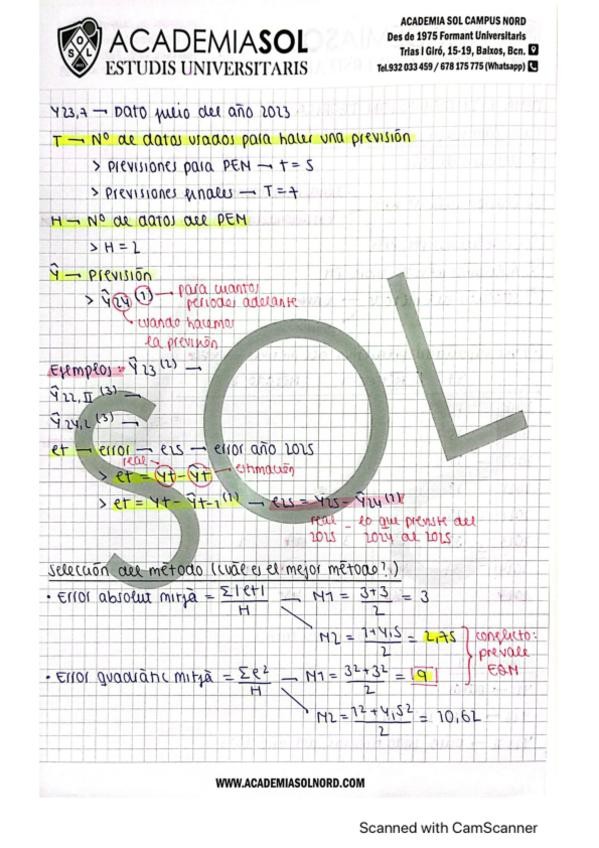 ACADEMIASOL
ESTUDIS UNIVERSITARIS
ACADEMIA SOL CAMPUS NORD
Des de 1975 Formant Universitaris
Trias I Giró, 15-19, Baixos, Bcn.
Tel.932 033 459 / 678 175 775 (Whatsapp)
Y23,7 → Dato julio del año 2023
T → Nº de datos usados para hacer una previsión
> Previsiones para PEM → t = 5
> Previsiones finales → T = 7
H → Nº de datos del PEM
> H = 2
Ŷ → Previsión
> Ŷ24 (1) → para cuantos periodos adelante
cuando hacemos
la previsión
Ejemplos: Ŷ23 (2) →
Ŷ22,II (3) →
Ŷ24,2 (3) →
et → error → e25 → error año 2025
real
> et = Yt - Ŷt → estimación
> et = Yt - Ŷt-1 (1) → e25 = Y25 - Ŷ24 (1)
real - lo que previste del
2025 2024 al 2025
Selección del método (cuál es el mejor método?)
• Error absolut mitjà = Σ|et| / H → M1 = 3+3 / 2 = 3
M2 = 1+4,5 / 2 = 2,75
conflicto:
prevale
EQM
• Error quadràtic mitjà = Σe² / H → M1 = 3²+3² / 2 = 9
M2 = 1²+4,5² / 2 = 10,62
SOL
WWW.ACADEMIASOLNORD.COM
Scanned with CamScanner